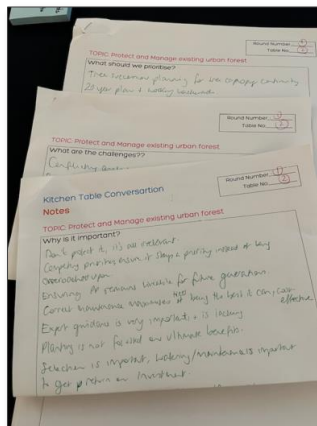 Round Number
Table No.
TOPIC: Protect and Manage existing urban forest
What should we prioritise?
Tree succession planning for tree canopy continuity
20 year plan & working backwards
Round Number
Table No.
TOPIC: Protect and Manage existing urban forest
What are the challenges??
Conflicting
Kitchen Table Conversartion
Notes
Round Number 1
Table No. 3
TOPIC: Protect and Manage existing urban forest
Why is it important?
Don't protect it, it's all relevant
Competing priorities ensure it stays a priority instead of being
encroached upon
Ensuring it remains useable for future generations.
Correct maintenance being the best it can, cost
effective
Expert guidance is very important, is lacking
Planting is not focused on ultimate benefits.
Selection is important, watering/maintenance is important
to get a return on investment.